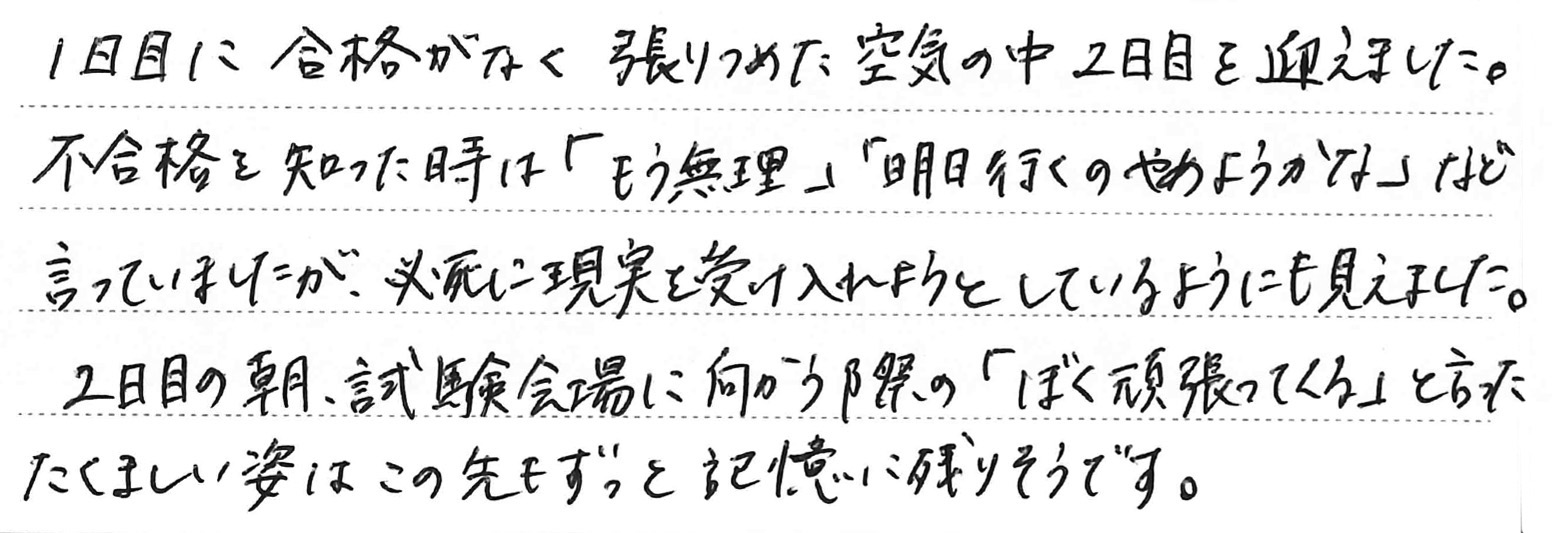 1日目に合格がなく張りつめた空気の中2日目を迎えました。
不合格を知った時は「もう無理」「明日行くのやめようかな」など
言っていましたが、必死に現実を受け入れようとしているようにも見えました。
2日目の朝、試験会場に向かう際の「ぼく頑張ってくる」と言った
たくましい姿はこの先もずっと記憶に残りそうです。